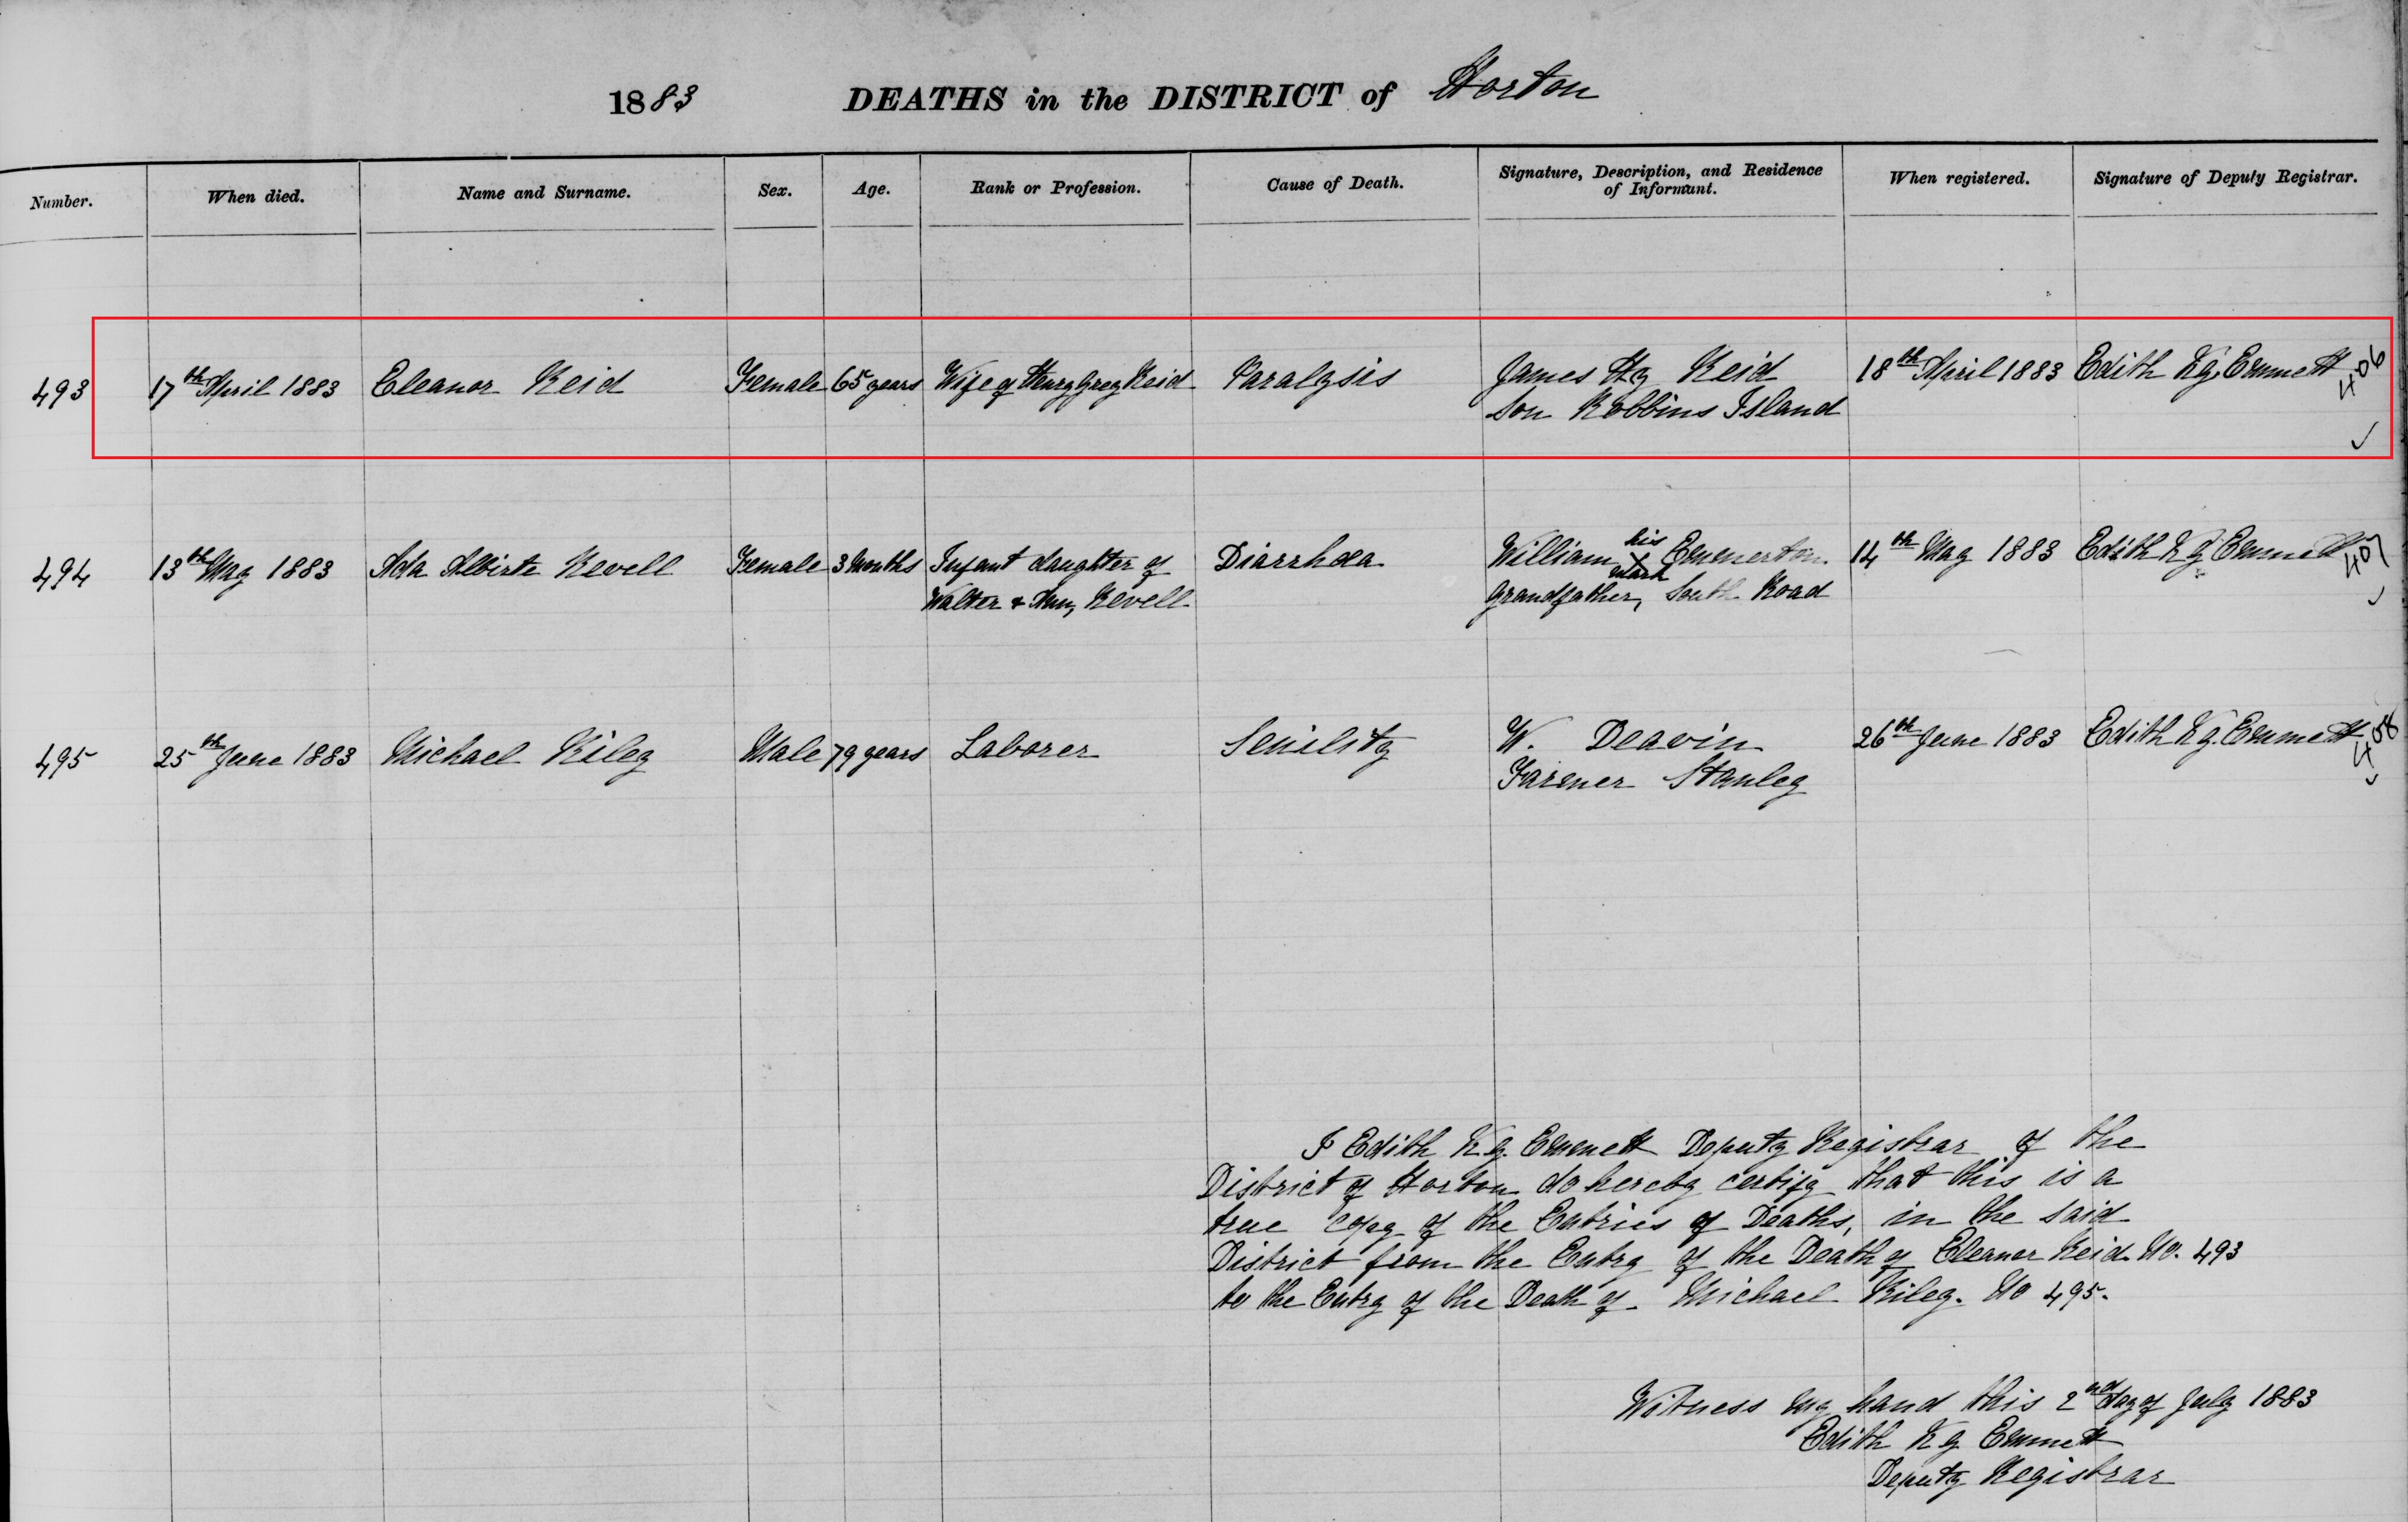 1883 DEATHS in the DISTRICT of Horton
Number. When died. Name and Surname. Sex. Age. Rank or Profession. Cause of Death. Signature, Description, and Residence of Informant. When registered. Signature of Deputy Registrar.
493 17th April 1883 Eleanor Reid Female 65 years Wife of Henry Grey Reid Paralysis James Hy Reid 18th April 1883 Edith Emmett 406
Son Robbins Island
✓
494 13th May 1883 Ada Albirta Revell Female 3 Months Infant daughter of Diarrhœa William his X mark Emmerton 14th May 1883 Edith Emmett 407
Walter & Ann, Revell Grandfather, South Road
✓
495 25th June 1883 Michael Riley Male 79 years Laborer Senility W. Deavin 26th June 1883 Edith Emmett 408
Farmer Stanley
✓
I Edith Emmett Deputy Registrar of the
District of Horton do hereby certify that this is a
true copy of the Entries of Deaths, in the said
District from the Entry of the Death of Eleanor Reid No. 493
to the Entry of the Death of Michael Riley. No 495.
Witness my hand this 2nd day of July 1883
Edith Emmett
Deputy Registrar